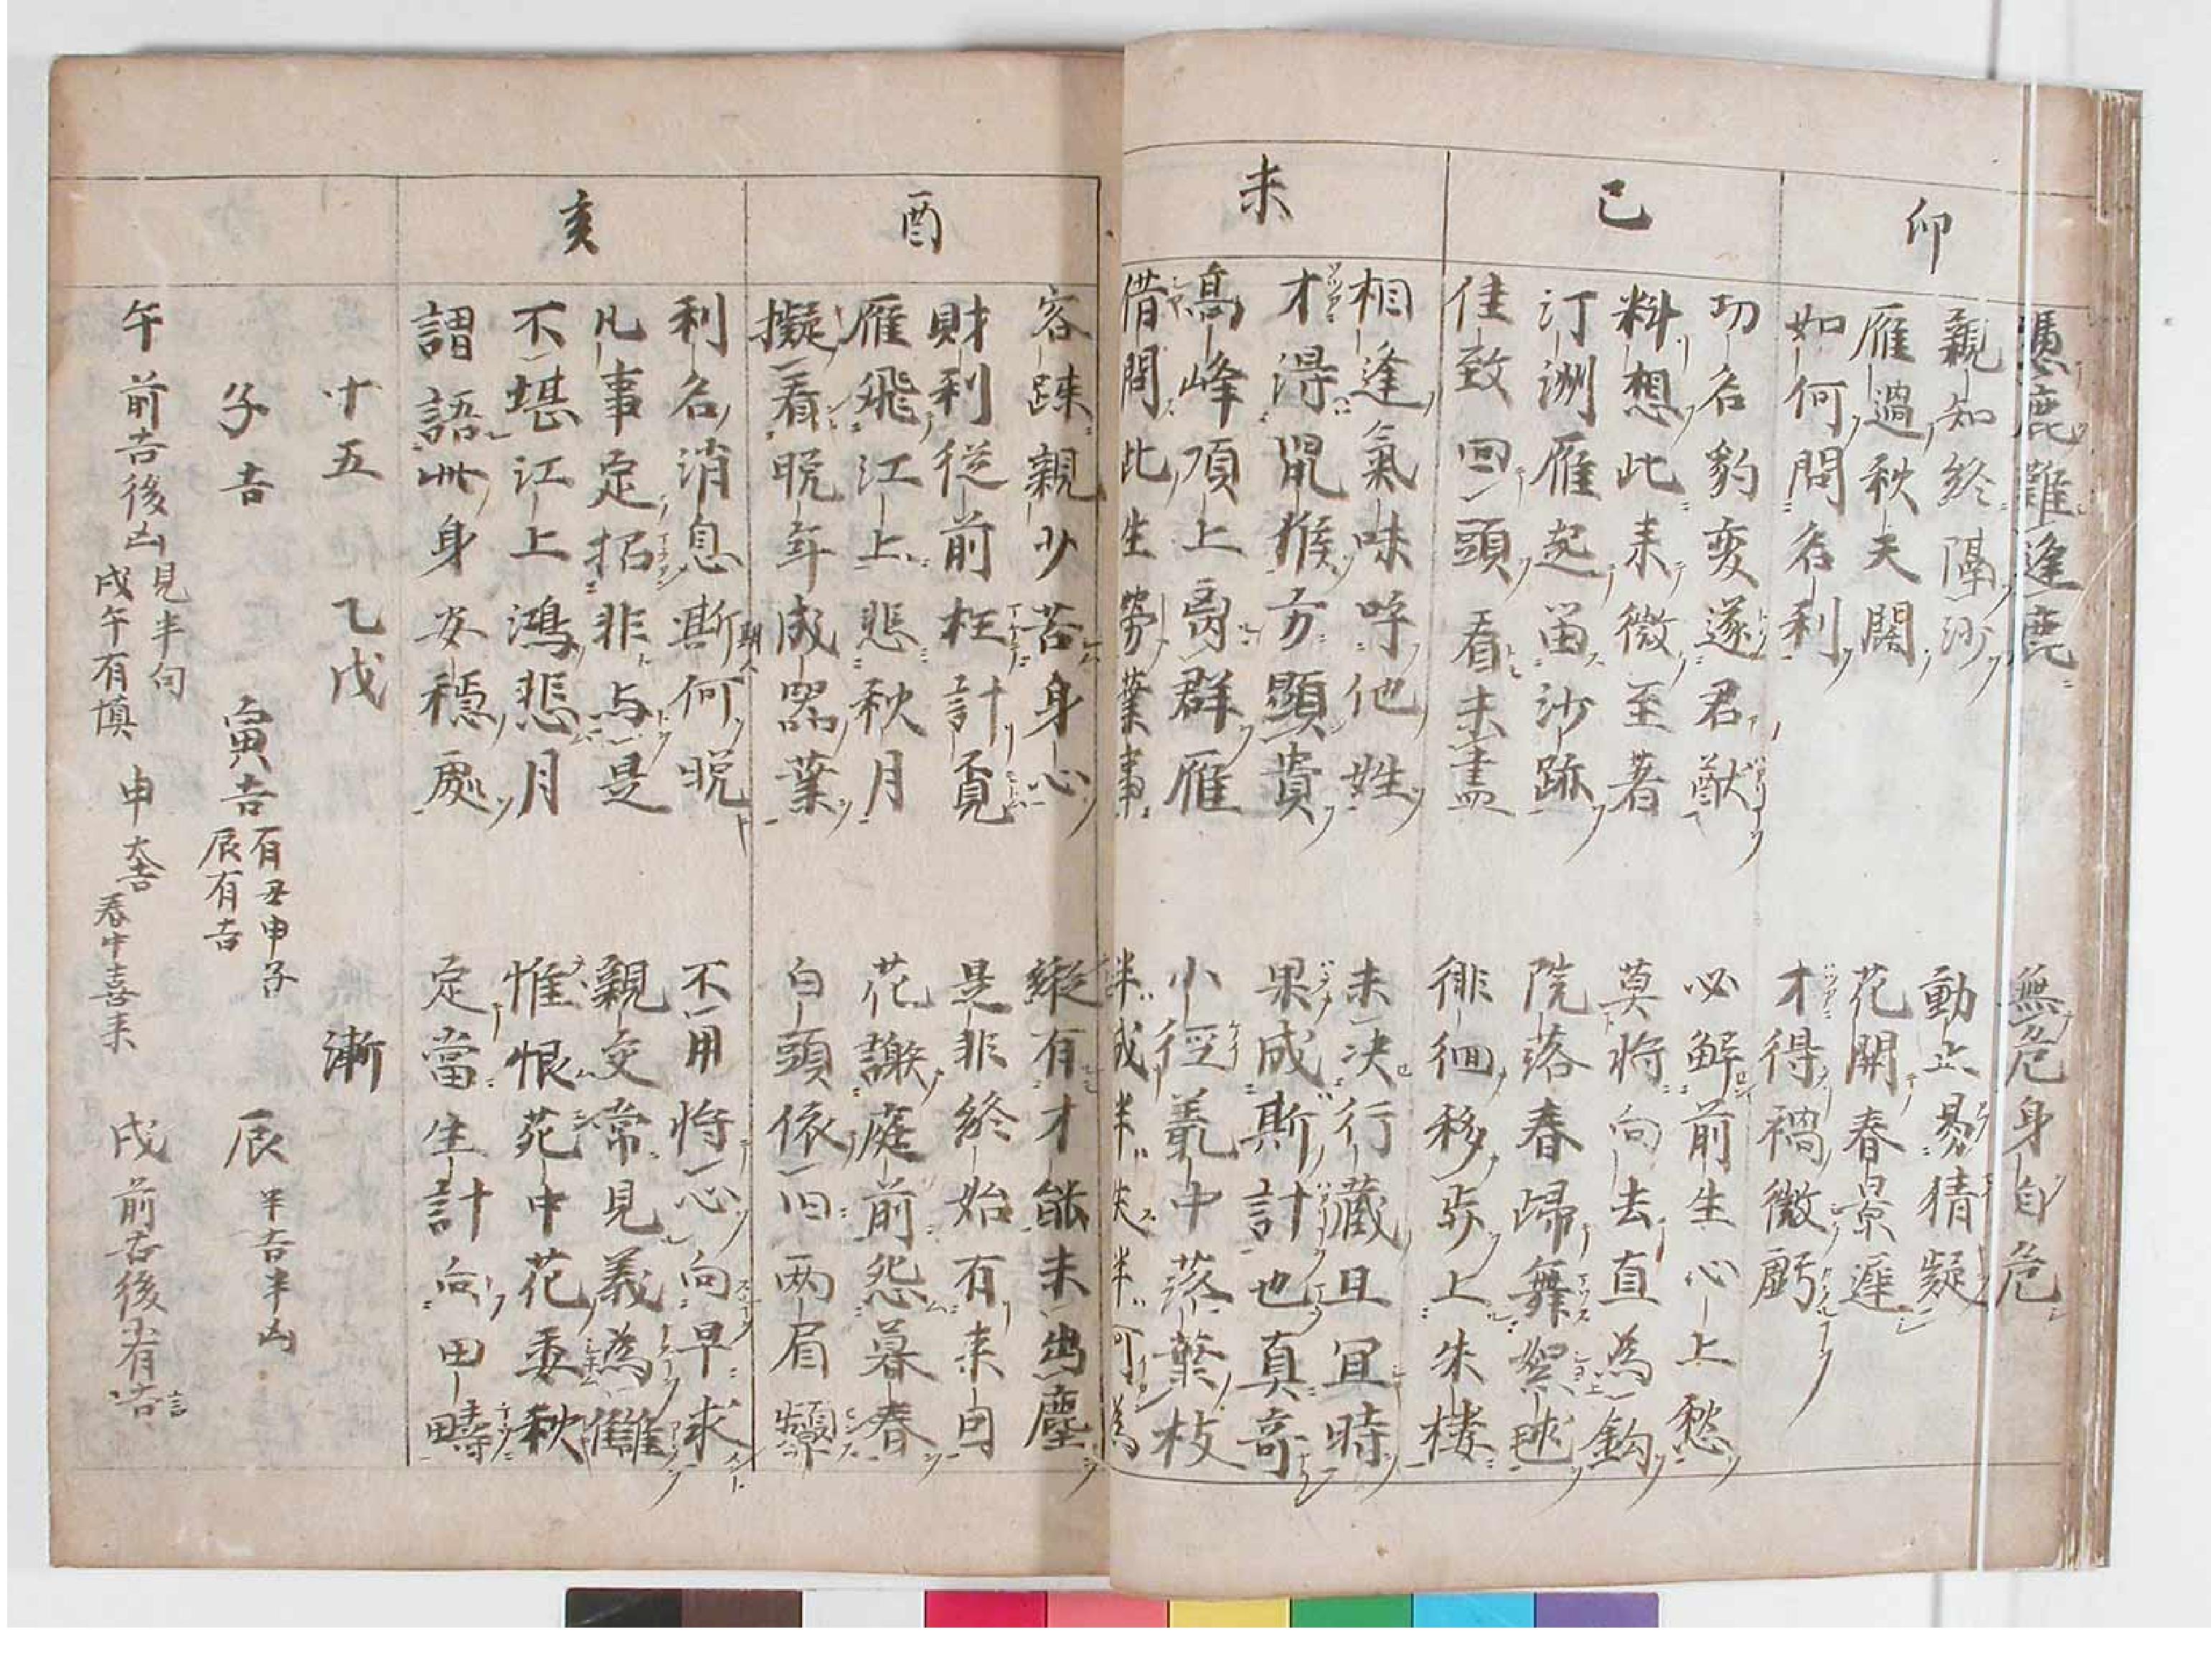 卯
憑鹿難逢鹿 無危身自危
親知終隔沙 動止易猜疑
雁過秋天闊 花開春景遅
如何問名利 才得禍微虧
巳
功名豹変遂君猷 必解前生心上愁
料想此来微至著 莫将向去直為鈎
汀洲雁起留沙跡 院落春帰舞絮毬
佳致回頭看未盡 徘徊移歩上朱楼
未
相逢氣味呼他姓 未决行蔵且宜時
才得鼠猴方顕貴 果成斯計也真奇
高峰頂上離群雁 小徑叢中落葉枝
借問此生労業事 半成半失半何為
酉
容踈親少苦身心 縦有才能未出塵
財利従前枉計覓 是非終始有来因
雁飛江上悲秋月 花謝庭前怨暮春
擬看晩年成器業 白頭依旧両眉顰
亥
利名消息斯何晩 不用将心向早求
凡事定招非与是 親交常見義為讎
不堪江上鴻悲月 惟恨苑中花委秋
謂語此身安穏處 定當生計向田疇
十五 乙戊 漸
子吉 寅吉 有丑申子 辰有吉 辰 半吉半凶
午前吉後凶 見半旬 戌午有慎 申 大吉 春中喜来 戌前吉後有吉